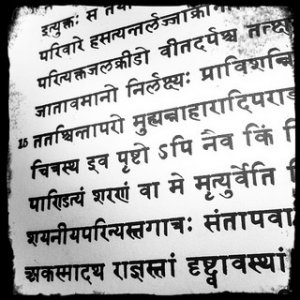 इत्युक्तः स
परिवारे हसत्यन्तर्लज्जाक्रा
परित्यक्तजलक्रीडो वीतदर्पश्च तत्क्ष
जातावमानो निर्लक्ष्यः प्राविशन्नि
15 ततश्चिन्तापरो मुह्यन्नाहारादिपराङ
चित्रस्थ इव पृष्टो ऽपि नैव किं
पाण्डित्यं शरणं वा मे मृत्युर्वेति
शयनीयपरिन्यस्तगात्रः संतापवा
अकस्मादथ राज्ञस्तां दृष्ट्वावस्थां